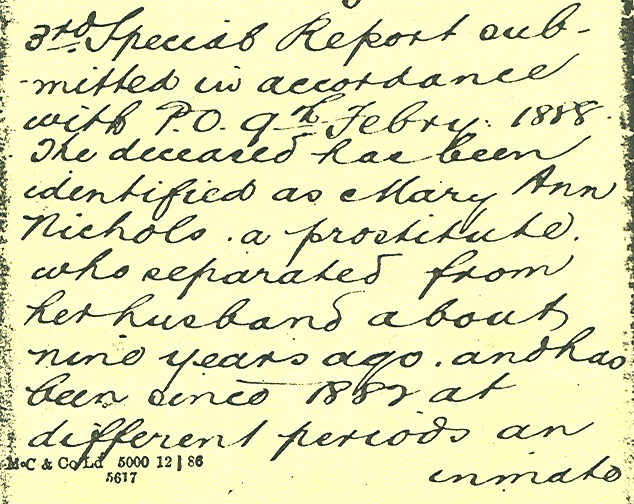 3rd Special Report sub-
-mitted in accordance
with P.O. 9th Febry. 1888.
The deceased has been
identified as Mary Ann
Nichols. a prostitute.
who separated from
her husband about
nine years ago. and has
been since 1882 at
different periods an
M·C & Co Ld 5000 12 | 86
5617
inmate